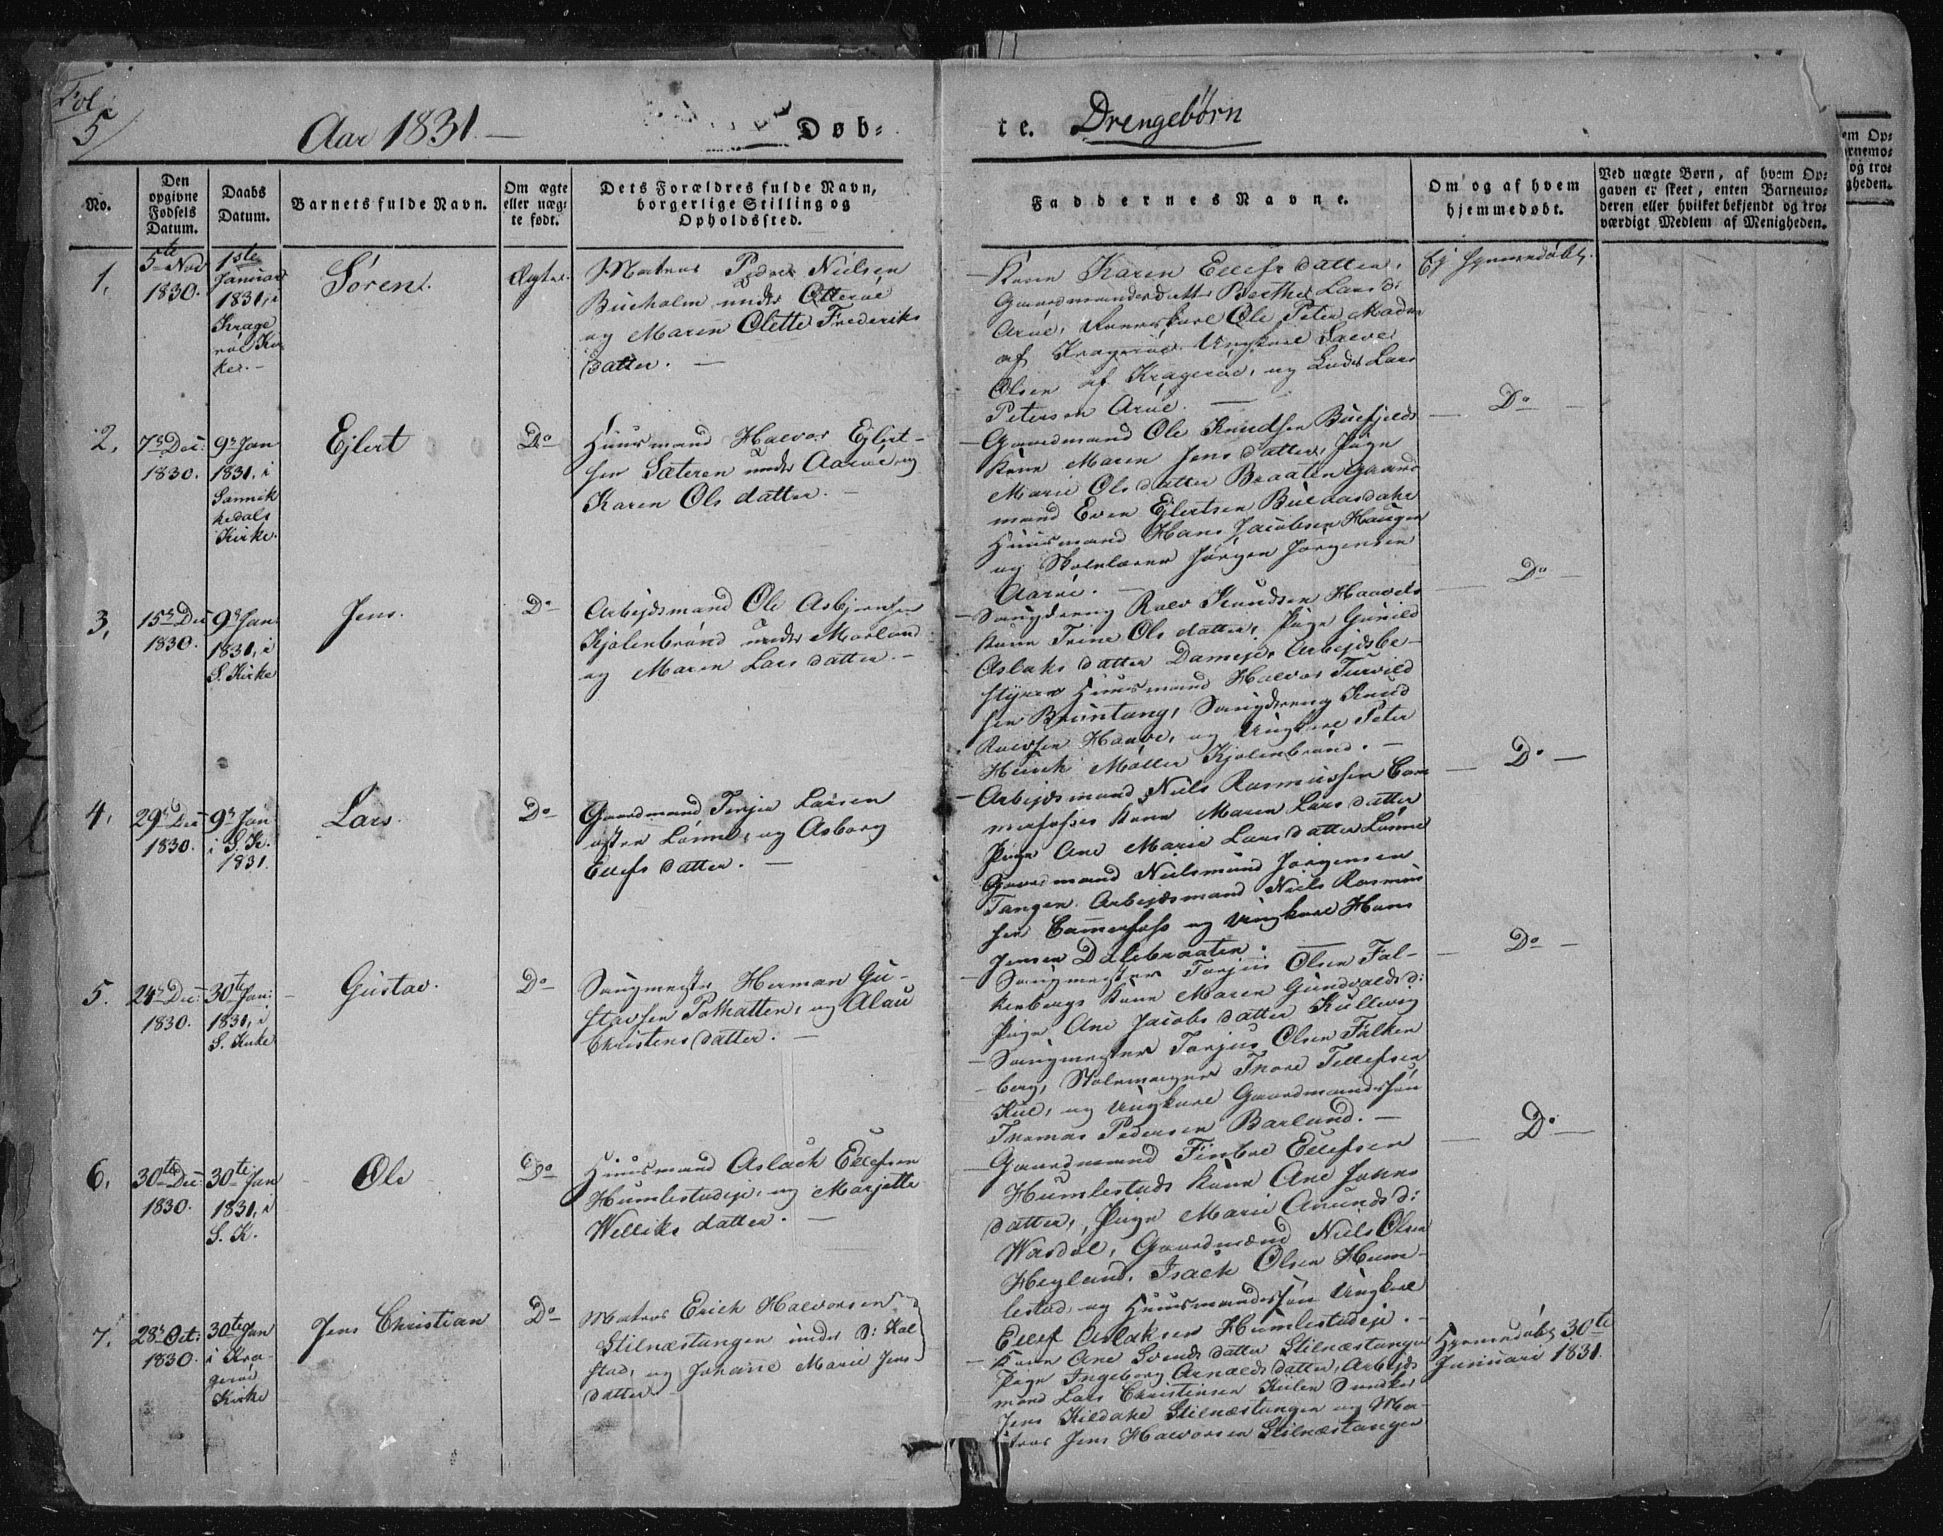 Fol
5
Aar 1831. Døb- te. Drengebørn
No.
Den opgivne Fødsels Datum.
Daabs Datum.
Barnets fulde Navn.
Om ægte eller uægte født.
Dets Forældres fulde Navn, borgerlige Stilling og Opholdssted.
Faddernes Navne.
Om og af hvem hjemmedøbt.
Ved uægte Børn, af hvem Opgaven er skeet, enten Barnemoderen eller hvilket bekjendt og troværdigt Medlem af Menigheden.
1.
5te Nov
1830.
1ste
Januar
1831, i
Krage
röe Kir
ke.
Sören.
Ægte.
Matros Peder Nielsen
Bueholm under Otteröe
og Maren Olette Frederiks
datter.
Kone Karen Ellefsdatter,
Gaardmandsdatter Berthe Larsd:
Aröe, Ole Peter Mads
af Kragerøe Ungkarl
Olsen af Kragerøe, og Lars
Petersen Aröe.
Ej hjemmedöbt.
2.
7de Dec:
1830.
9de Jan
1831, i
Sannik
kedals
Kirke.
Ejlert
Do
Huusmand Halvor Ejlert-
sen Sæteren under Aaröe, og
Karen Olsdatter.
Gaardmand Ole Knudsen Buefjeld
Kone Maren Jensdatter, Pige
Marie Olsdatter Braaten Gaard
mand Even Ejlertsen
Huusmand Hans Jacobsen Haugen
og Skolelærer Jörgen Jörgensen
Aaröe.
Do
3.
15de Dec
1830.
9de Jan
1831, i
S. Kirke
Jens.
Do
Arbejdsmand Ole Asbjörnsen
Kjölenbrönd under Morland
og Maren Larsdatter.
Saugdreng Rolv Knudsen Haave
Kone Trine Olsdatter, Pige Gunild
Aslaksdatter Arbejdsbe-
styrer Huusmand Halvor
sen Saugdreng Knud
Rolvsen Haave, og Ungkarl Peter
Henrik Möller Kjölenbrönd.
Do
4.
29de Dec
1830.
9de Jan
i S. K.
1831.
Lars.
Do
Gaardmand Terjer Larsen
östre Lönne, og Asborg
Ellefsdatter.
Arbejdsmand Niels Rasmussen Cam
merfosses Kone Maren Larsdatter
Pige Ane Marie Larsdatter Lönne
Gaardmand Nielsmund Jörgensen
Tangen. Arbejdsmand Niels Rasmus
sen Camerfoss og Ungkarl Hans
Jensen Dalebraaten.
Do
5.
24de Dec:
1830.
30te Jan:
1831, i
S. Kirke
Gustav.
Do
Saugmester Herman Gu-
stavsen Pothatten, og Alau
Christensdatter.
Saugmester Torjus Olsen Fal-
kenbergs Kone Maren Gundvaldsd:
Pige Ane Jacobsdatter Kullevig
Saugmester Torjus Olsen Falken
berg, Thore Tellefsen
Kiil, og Ungkarl Gaardmandssön
Thomas Pedersen Barland.
Do
6.
30te Dec:
1830.
30te Jan
1831, i
S. K.
Ole
Do
Huusmand Aslack Ellefsen
Humlestadeje, og Marjette
Welliksdatter.
Gaardmand Finboe Ellefsen
Humlestads Kone Ane Johns
datter, Pige Marie Amundsd:
Wasdal, Gaardmænd Niels Olsen
Heyland, Isack Olsen Hum-
lestad, og Huusmandssön Ungkarl
Ellef Aslaksen Humlestadeje.
Do
7.
28de Oct:
1830.
30te Jan
i Kra-
geröe
Kirke
Jens Christian
Do
Matros Erich Halvorsen
Stilnæstangen under Ö: Kal
stad, og Johane Marie Jens
datter
Kone Ane Svendsdatter Stilnæstangen
Pige Ingeborg Arnaldsdatter, Arbejds
mand Lars Christensen Kiilen
Jens Kildahl Stilnæstangen og Ma-
tros Jens Halvorsen Stilnæstangen
Hjemmedöbt 30te
Januari 1831.
em Op-
arnemo-
og tro-
gheden.